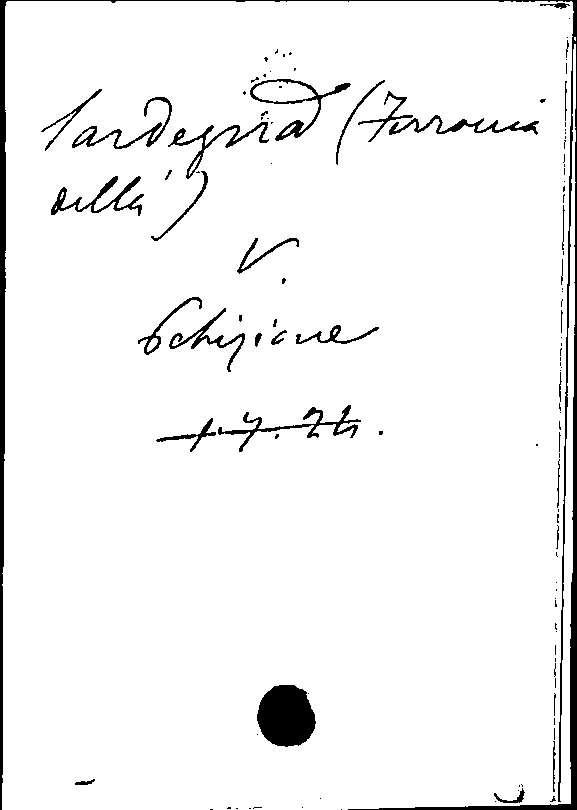 Sardegna (Ferrovia
della)
V.
Schizione
1.7.24.